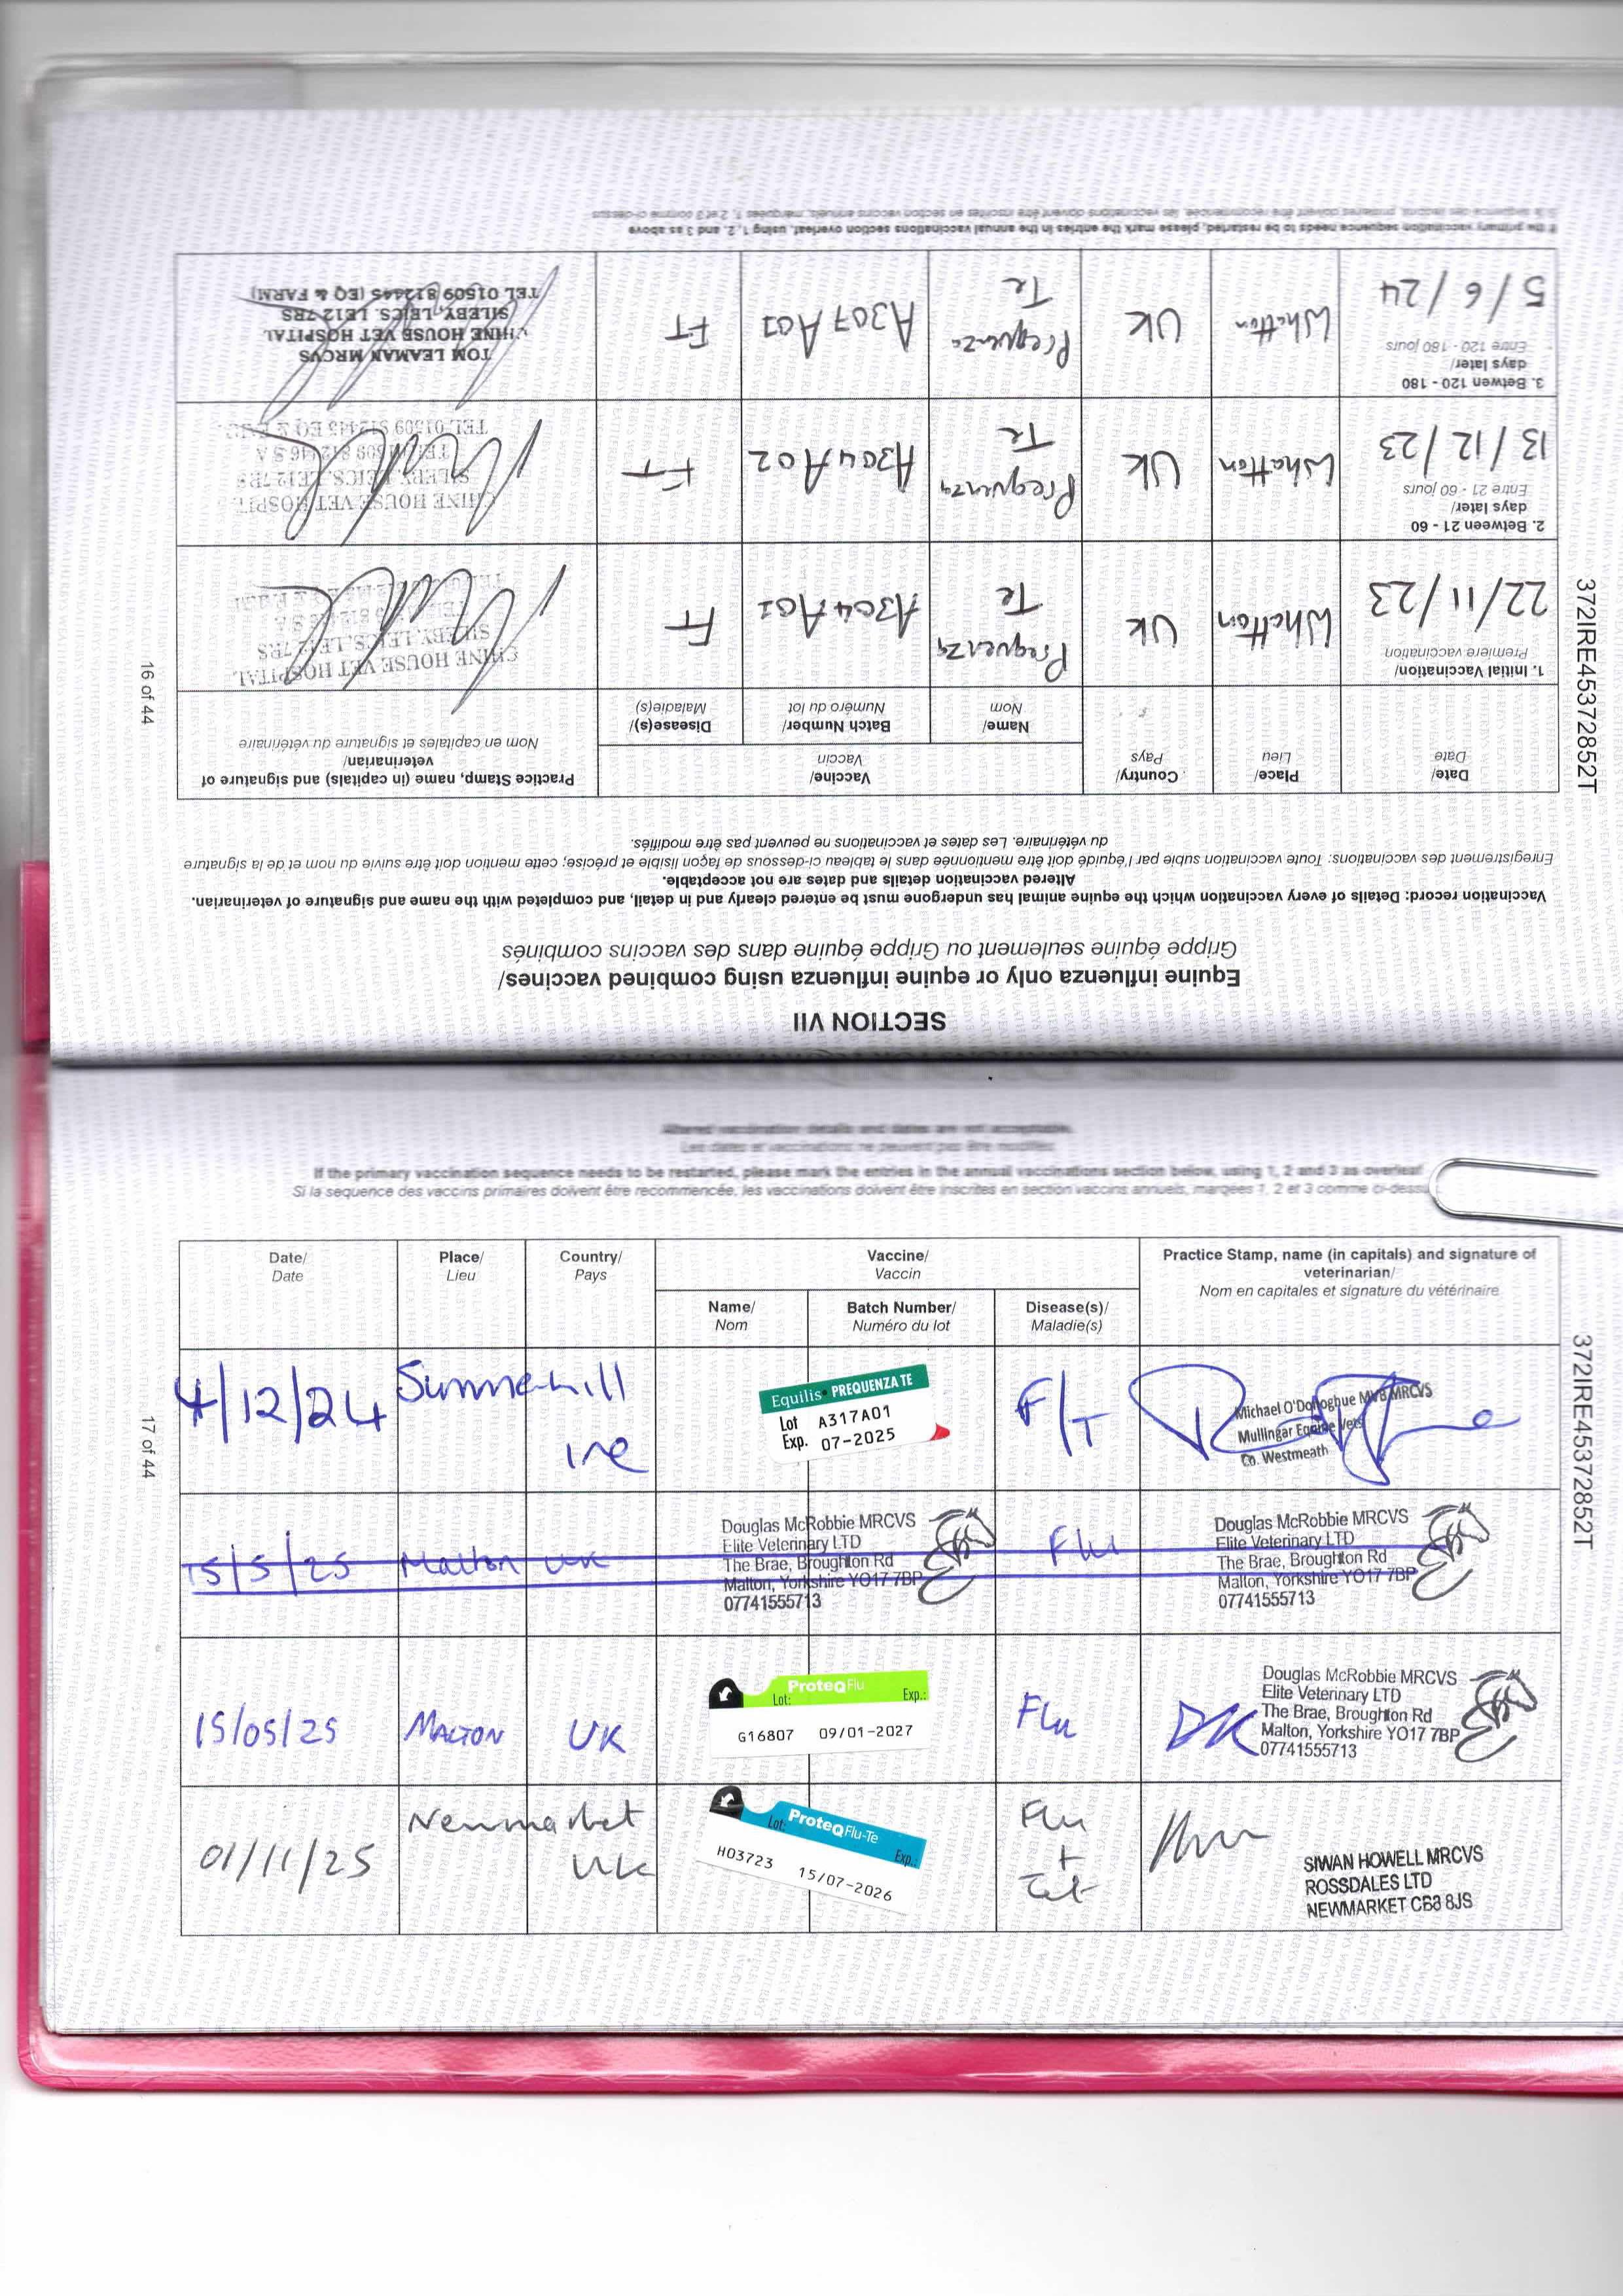 SECTION VII
Equine influenza only or equine influenza using combined vaccines/
Grippe équine seulement ou Grippe équine dans des vaccins combinés
Vaccination record: Details of every vaccination which the equine animal has undergone must be entered clearly and in detail, and completed with the name and signature of veterinarian.
Altered vaccination details and dates are not acceptable.
Enregistrement des vaccinations: Toute vaccination subie par l'équidé doit être mentionnée dans le tableau ci-dessous de façon lisible et précise; cette mention doit être suivie du nom et de la signature
du vétérinaire. Les dates et vaccinations ne peuvent pas être modifiés.
Date/
Date
Place/
Lieu
Country/
Pays
Vaccine/
Vaccin
Name/
Nom
Batch Number/
Numéro du lot
Disease(s)/
Maladie(s)
Practice Stamp, name (in capitals) and signature of
veterinarian/
Nom en capitales et signature du vétérinaire
1. Initial Vaccination/
Première vaccination
22/11/23
Whatton
UK
Prequenza
Te
A304A01
FT
CHINE HOUSE VET HOSPITAL
SILEBY, LEICS. LE12 7RS
2. Between 21 - 60
days later/
Entre 21 - 60 jours
13/12/23
Whatton
UK
Prequenza
Te
A304A02
FT
CHINE HOUSE VET HOSPIT
SILEBY, LEICS. LE12 7RS
TEL 01509 812446 S.A
TEL 01509 812445 EQ &
3. Betwen 120 - 180
days later/
Entre 120 - 180 jours
5/6/24
Whatton
UK
Prequenza
Te
A307A01
FT
TOM LEAMAN MRCVS
CHINE HOUSE VET HOSPITAL
SILEBY, LEICS. LE12 7RS
TEL 01509 812445 (EQ & FARM)
If the primary vaccination sequence needs to be restarted, please mark the entries in the annual vaccinations section overleaf, using 1, 2, and 3 as above
Si la sequence des vaccins primaires doivent être recommencée, les vaccinations doivent être inscrites en section vaccins annuels, marquées 1, 2 et 3 comme ci-dessus
16 of 44
372IRE45372852T
Altered vaccination details and dates are not acceptable.
Les dates et vaccinations ne peuvent pas être modifiés
If the primary vaccination sequence needs to be restarted, please mark the entries in the annual vaccinations section below, using 1, 2 and 3 as overleaf
Si la sequence des vaccins primaires doivent être recommencée, les vaccinations doivent être inscrites en section vaccins annuels, marqées 1, 2 et 3 comme ci-dessu
Date/
Date
Place/
Lieu
Country/
Pays
Vaccine/
Vaccin
Name/
Nom
Batch Number/
Numéro du lot
Disease(s)/
Maladie(s)
Practice Stamp, name (in capitals) and signature of
veterinarian/
Nom en capitales et signature du vétérinaire
4/12/24
Summerhill
ire
Equilis PREQUENZA TE
Lot A317A01
Exp. 07-2025
F/T
Michael O'Donoghue MVB MRCVS
Mullingar Equine Vets
Co. Westmeath
15/5/25
Malton
UK
Douglas McRobbie MRCVS
Elite Veterinary LTD
The Brae, Broughton Rd
Malton, Yorkshire YO17 7BP
07741555713
Flu
Douglas McRobbie MRCVS
Elite Veterinary LTD
The Brae, Broughton Rd
Malton, Yorkshire YO17 7BP
07741555713
15/05/25
MALTON
UK
ProteqFlu
Lot: Exp.:
G16807 09/01-2027
Flu
Douglas McRobbie MRCVS
Elite Veterinary LTD
The Brae, Broughton Rd
Malton, Yorkshire YO17 7BP
07741555713
01/11/25
Newmarket
UK
ProteqFlu-Te
Lot: Exp.:
H03723 15/07-2026
Flu
+
Tet
SIWAN HOWELL MRCVS
ROSSDALES LTD
NEWMARKET CB8 8JS
17 of 44
372IRE45372852T